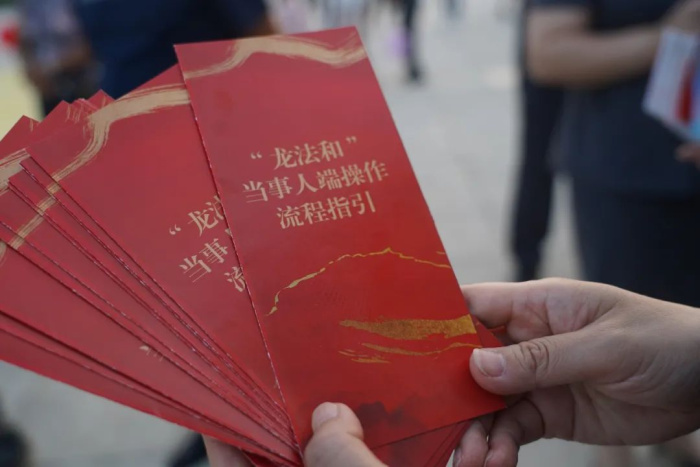 “龙法和”
当事人端操作
流程指引
“龙法
当事
流